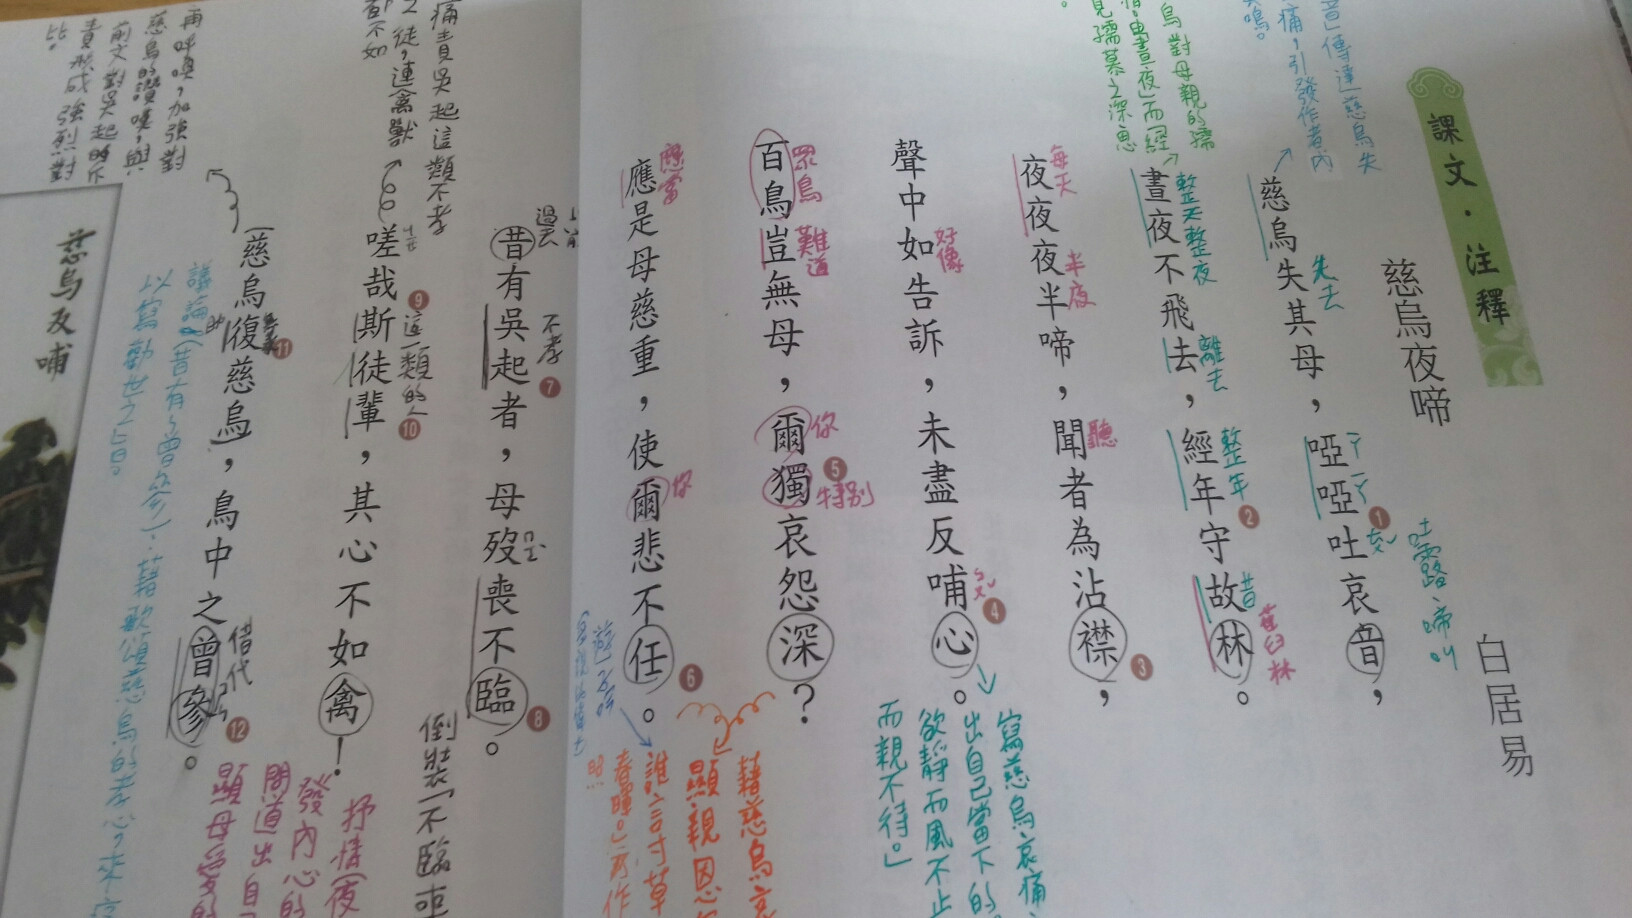 課文·注釋
慈烏夜啼
白居易
慈烏失其母，啞啞吐哀音，
失去
ㄧㄚ ㄧㄚ
1
吐露、啼叫
晝夜不飛去，經年守故林。
整天整夜
離去
整年
2
昔
舊曰林
夜夜夜半啼，聞者為沾襟，
每天
半夜
聽
3
聲中如告訴，未盡反哺心。
好像
ㄅㄨˇ
4
百鳥豈無母，爾獨哀怨深？
眾鳥
難道
你
特別
5
應是母慈重，使爾悲不任。
應當
你
6
昔有吳起者，母歿喪不臨。
過去
不孝
7
8
嗟哉斯徒輩，其心不如禽！
9
這一類的人
10
慈烏復慈烏，鳥中之曾參。
11
借代
12
慈烏失
痛，引發作者內
烏對母親的孺
晝夜」而「經
見孺慕之深思
寫慈烏哀痛
出自己當下的
欲靜而風不止
而親不待。」
藉慈烏哀
顯親恩
誰言寸草
春暉。」
倒裝「不臨
痛責吳起這類不孝
之徒，連禽獸
都不如
再呼喚，加強對
慈烏的讚嘆，與
前文對吳起的斥
責形成強烈對
比。
抒情(夜
發內心的
間道出自己
顯母愛的
議論(昔有～曾參)：藉歌頌慈烏的孝心，來
以寓勸世之旨。
慈烏反哺